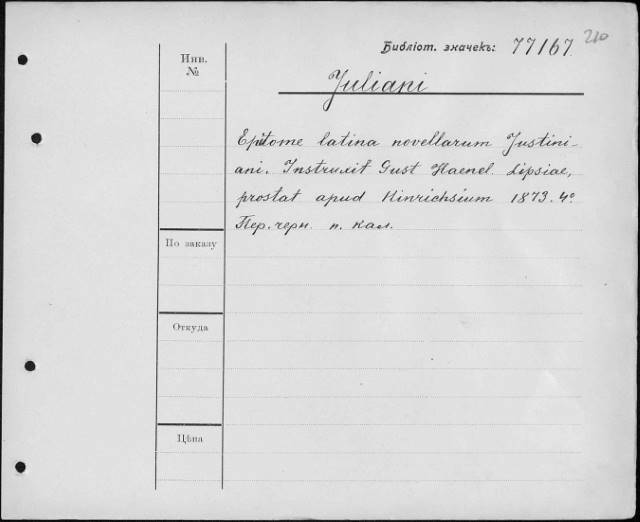 210
Библіот. значекъ: 77167
Инв.
№
Juliani
Epitome latina novellarum Justini-
ani. Instruxit Gust Haenel. Lipsiae,
prostat apud Hinrichsium 1873. 4º
Пер. черн. п. кал.
По заказу
Откуда
Цѣна